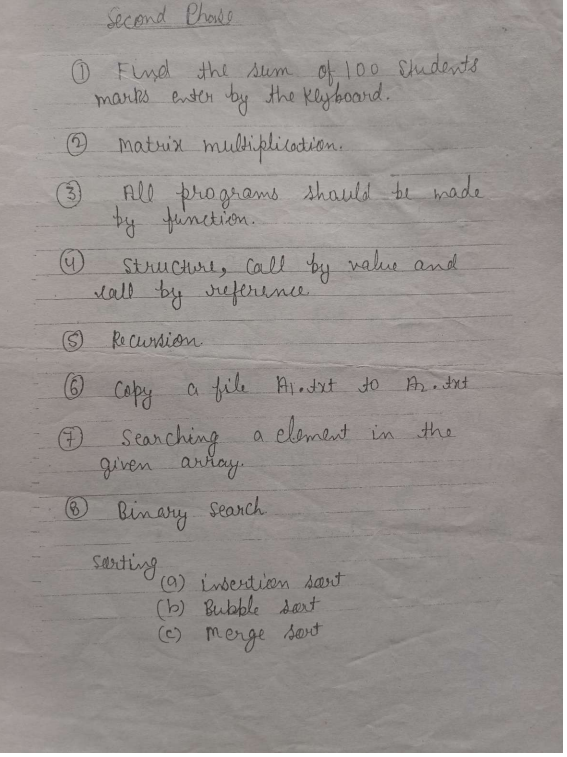 Second Phase
① Find the sum of 100 students
marks enter by the keyboard.
② Matrix multiplication.
③ All programs should be made
by function.
④ Structure, call by value and
call by reference
⑤ Recursion
⑥ Copy a file A1.txt to A2.txt
⑦ Searching a element in the
given array.
⑧ Binary search
Sorting
(a) insertion sort
(b) Bubble sort
(c) merge sort